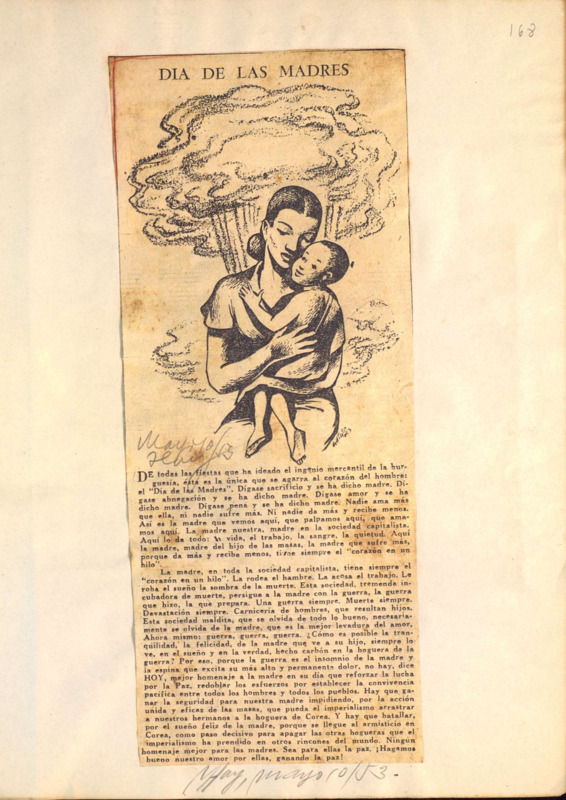 168
DIA DE LAS MADRES
Mayo 10/53
DE todas las fiestas que ha ideado el ingenio mercantil de la bur-
guesía, ésta es la única que se agarra al corazón del hombre:
el "Día de las Madres". Dígase sacrificio y se ha dicho madre. Dí-
gase abnegación y se ha dicho madre. Dígase amor y se ha
dicho madre. Dígase pena y se ha dicho madre. Nadie ama más
que ella, ni nadie sufre más. Ni nadie da más y recibe menos.
Así es la madre que vemos aquí, que palpamos aquí, que ama-
mos aquí. La madre nuestra, madre en la sociedad capitalista.
Aquí lo da todo: la vida, el trabajo, la sangre, la quietud. Aquí
la madre, madre del hijo de las masas, la madre que sufre más,
porque da más y recibe menos, tiene siempre el "corazón en un
hilo".
La madre, en toda la sociedad capitalista, tiene siempre el
"corazón en un hilo". La rodea el hambre. La acosa el trabajo. Le
roba el sueño la sombra de la muerte. Esta sociedad, tremenda in-
cubadora de muerte, persigue a la madre con la guerra, la guerra
que hizo, la que prepara. Una guerra siempre. Muerte siempre.
Devastación siempre. Carnicería de hombres, que resultan hijos.
Esta sociedad maldita, que se olvida de todo lo bueno, necesaria-
mente se olvida de la madre, que es la mejor levadura del amor.
Ahora mismo: guerra, guerra, guerra. ¿Cómo es posible la tran-
quilidad, la felicidad, de la madre que ve a su hijo, siempre lo
ve, en el sueño y en la verdad, hecho carbón en la hoguera de la
guerra? Por eso, porque la guerra es el insomnio de la madre y
la espina que excita su más alto y permanente dolor, no hay, dice
HOY, mejor homenaje a la madre en su día que reforzar la lucha
por la Paz, redoblar los esfuerzos por establecer la convivencia
pacífica entre todos los hombres y todos los pueblos. Hay que ga-
nar la seguridad para nuestra madre impidiendo, por la acción
unida y eficaz de las masas, que pueda el imperialismo arrastrar
a nuestros hermanos a la hoguera de Corea. Y hay que batallar,
por el sueño feliz de la madre, porque se llegue al armisticio en
Corea, como paso decisivo para apagar las otras hogueras que el
imperialismo ha prendido en otros rincones del mundo. Ningún
homenaje mejor para las madres. Sea para ellas la paz. ¡Hagamos
bueno nuestro amor por ellas, ganando la paz!
Hoy, mayo 10/53.-